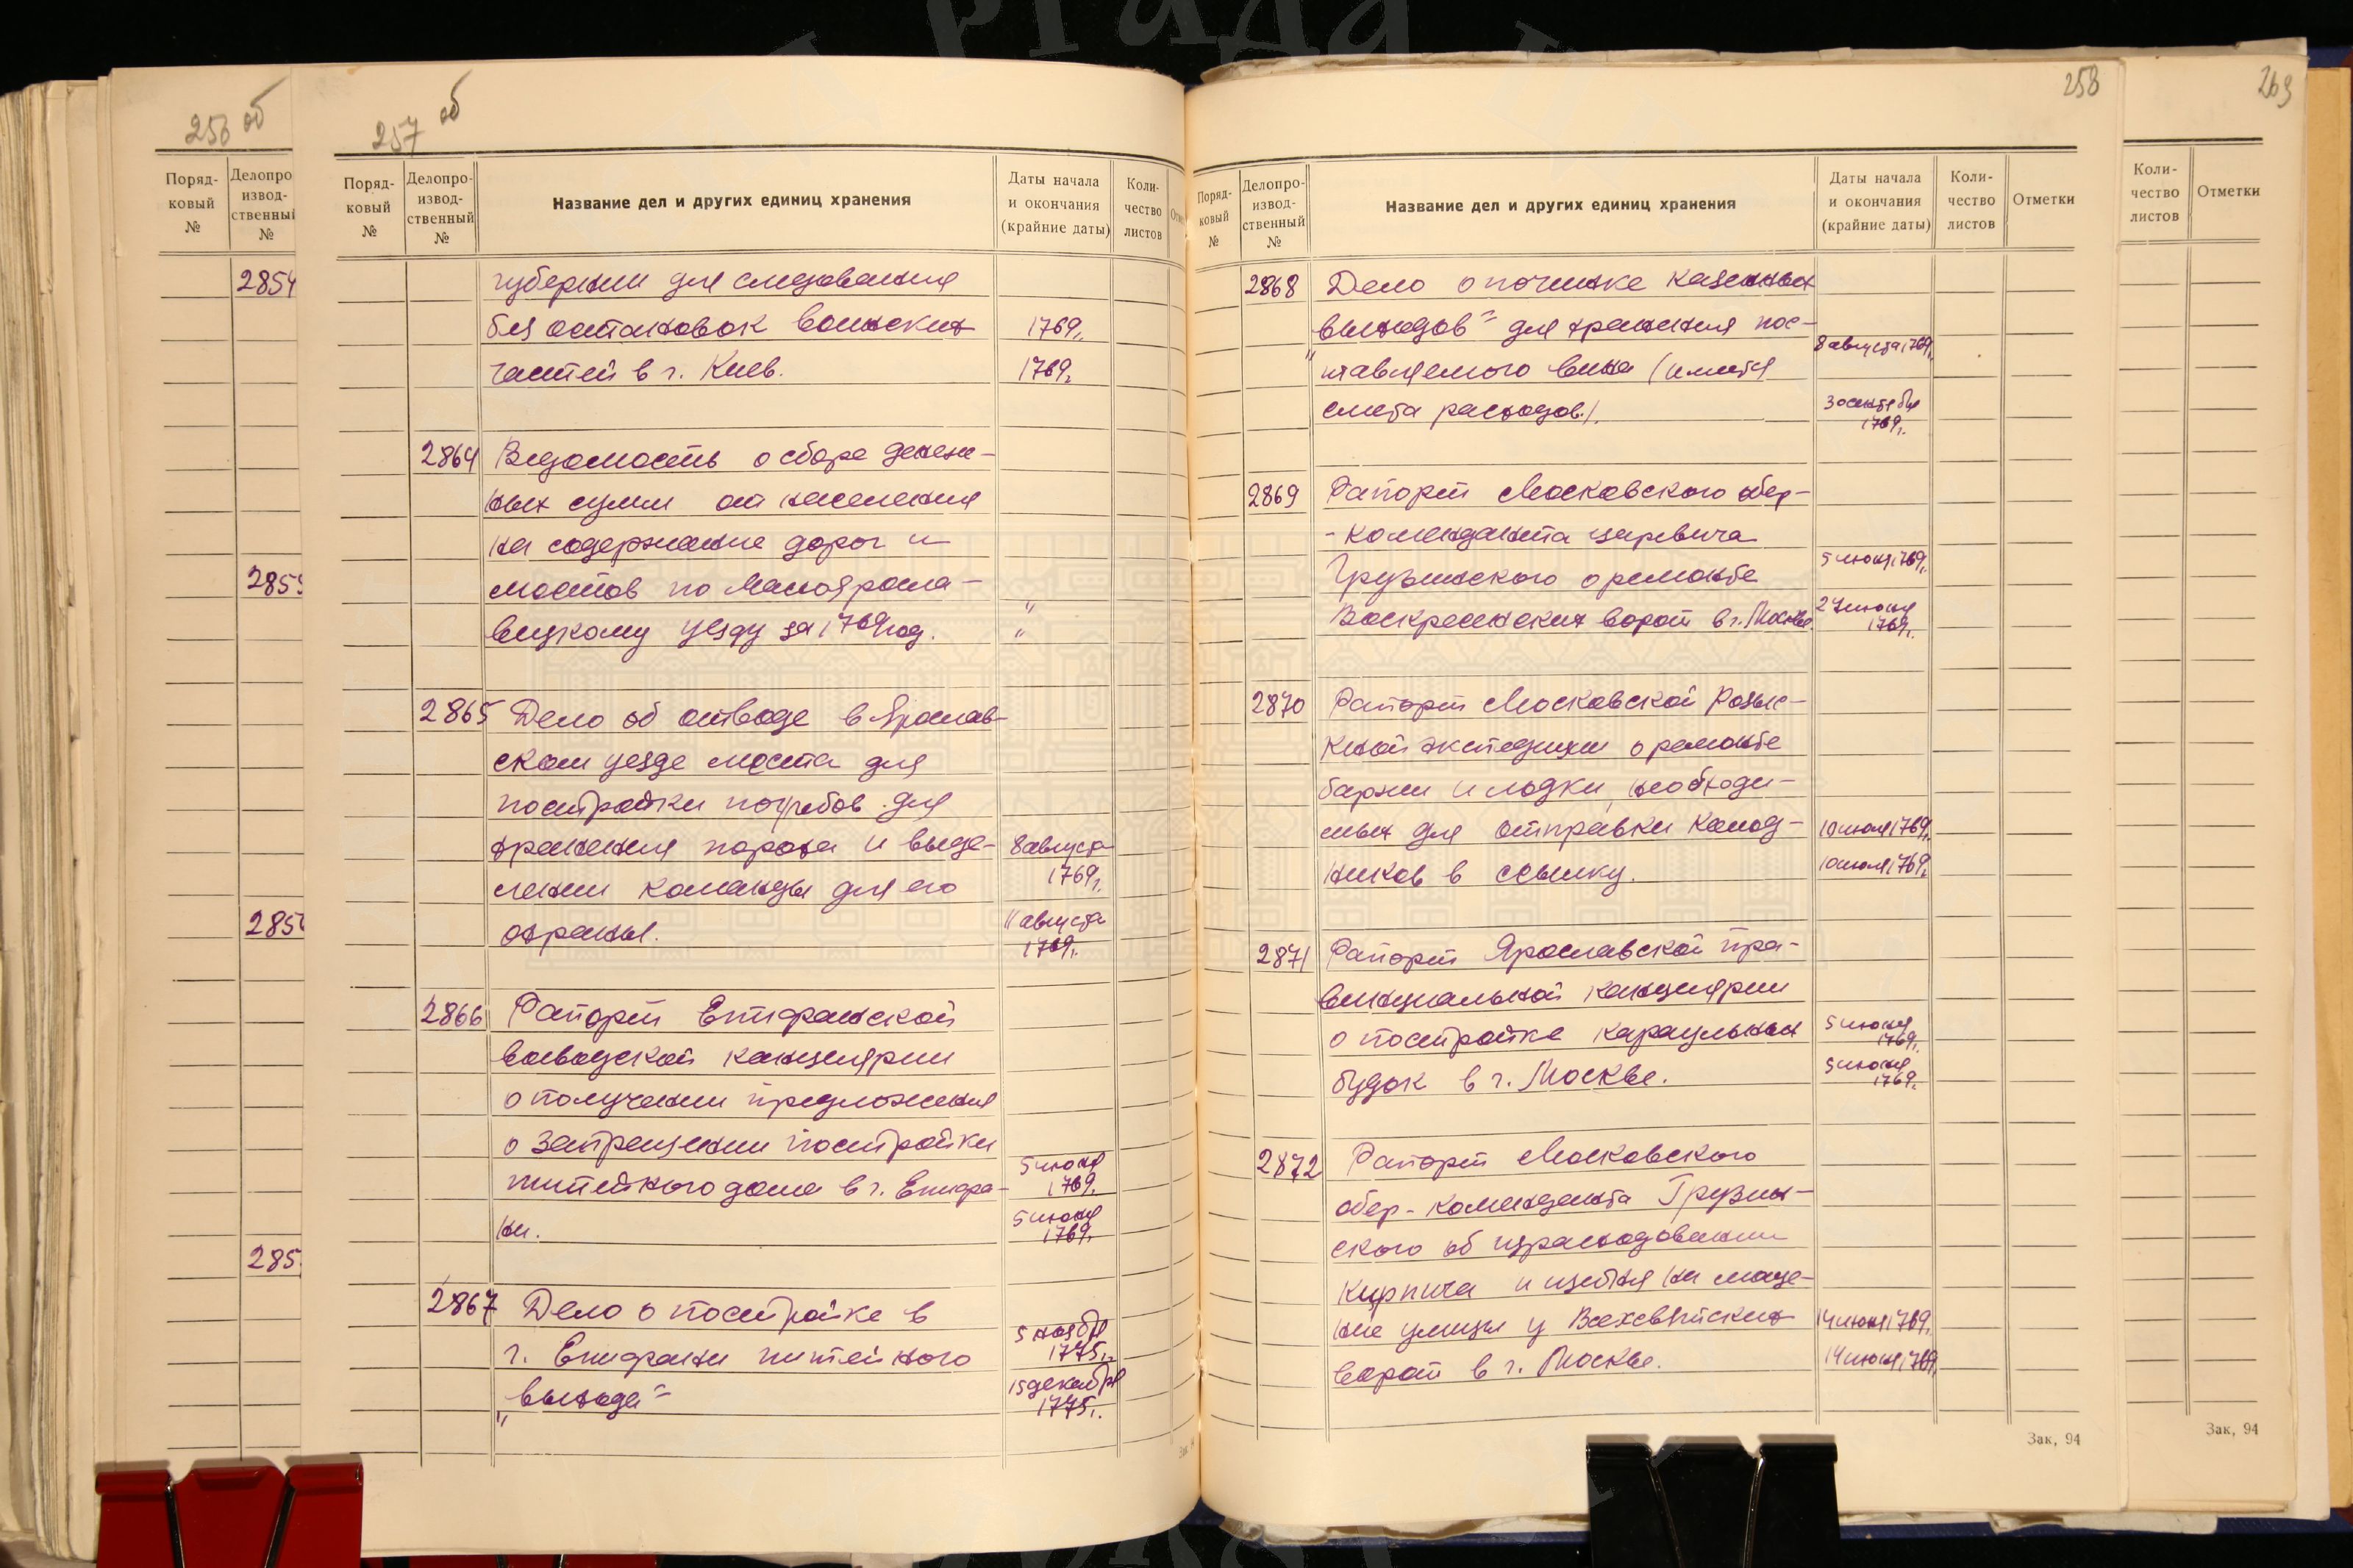 256 об
Поряд-
ковый
№
Делопро
извод-
ственны
№
2854
285
285
285
257 об
Поряд-
ковый
№
Делопро-
извод-
ственный
№
Название дел и других единиц хранения
Даты начала
и окончания
(крайние даты)
Коли-
чество
листов
губернии для следования
без остановок воинских 1769г.
частей в г. Киев. 1769г.
2864 Ведомость о сборе денеж-
ных сумм от населения
на содержание дорог и
мостов по Малояросла-
вецкому уезду за 1769 год. "
"
2865 Дело об отводе в Ярослав-
ском уезде места для
постройки погребов для
хранения пороха и выде-
лении команды для его
охраны.
8 августа
1769г.
11 августа
1769г.
2866 Рапорт Епифанской
воеводской канцелярии
о получении предложения
о запрещении постройки
питейного дома в г. Епифа-
ни.
5 июня
1769г.
5 июня
1769г.
2867 Дело о постройке в
г. Епифани питейного
„выхода"
5 ноября
1775г.
15 декабря
1775г.
258
Поряд-
ковый
№
Делопро-
извод-
ственный
№
Название дел и других единиц хранения
Даты начала
и окончания
(крайние даты)
Коли-
чество
листов
Отметки
2868 Дело о починке казенных
„выходов" для хранения пос-
тавляемого вина (имеется
смета расходов).
8 августа 1769г.
30 сентября
1769г.
2869 Рапорт Московского обер-
-коменданта царевича
Грузинского о ремонте
Воскресенских ворот в г. Москве.
5 июня 1769г.
27 июня
1769г.
2870 Рапорт Московской Розыс-
кной экспедиции о ремонте
баржи и лодки, необходи-
мых для отправки колод-
ников в ссылку.
10 июля 1769г.
10 июля 1769г.
2871 Рапорт Ярославской про-
винциальной канцелярии
о постройке караульных
будок в г. Москве.
5 июня
1769г.
5 июня
1769г.
2872 Рапорт Московского
обер-коменданта Грузин-
ского об израсходовании
кирпича и щебня на моще-
ние улицы у Всехсвятских
ворот в г. Москве.
14 июня 1769г.
14 июня 1769г.
Зак, 94
263
Коли-
чество
листов
Отметки
Зак, 94